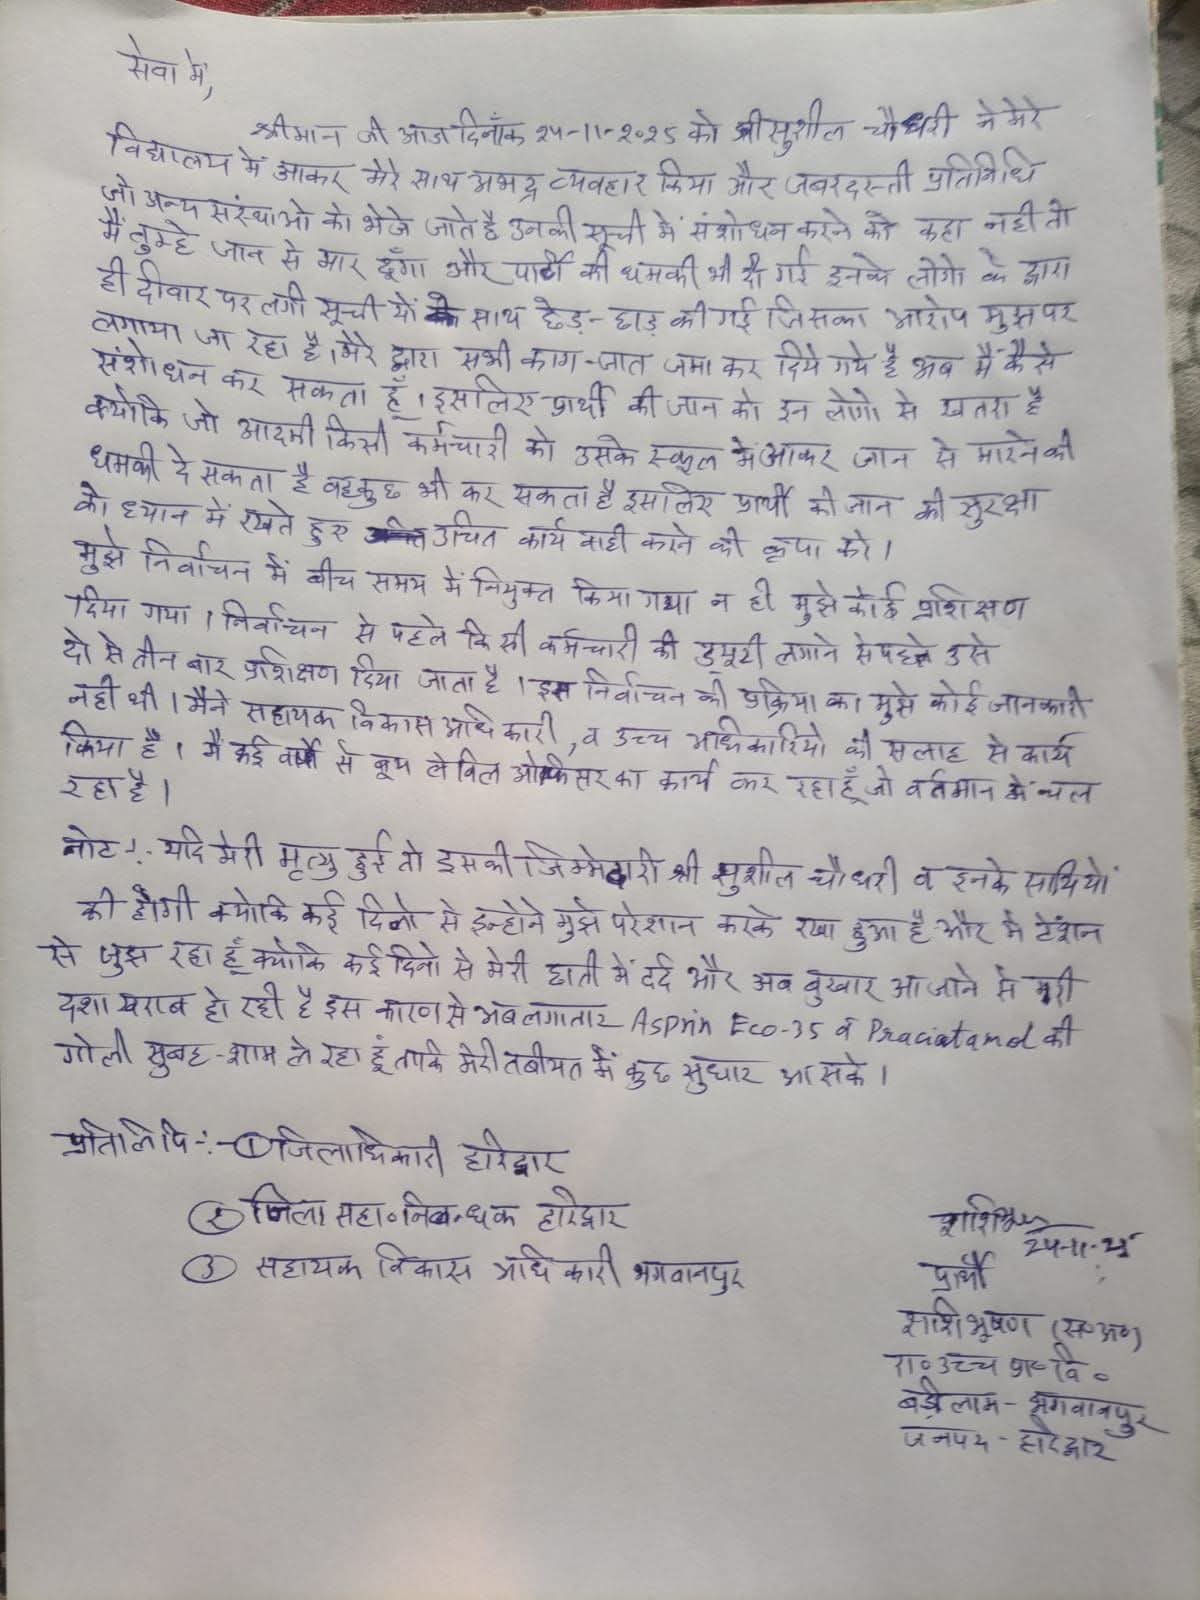 सेवा में,
श्रीमान जी आज दिनाँक 24-11-2025 को श्री सुशील चौधरी ने मेरे
विद्यालय में आकर मेरे साथ अभद्र व्यवहार किया और जबरदस्ती प्रतिनिधि
जो अन्य संस्थाओ को भेजे जाते है उनकी सूची में संशोधन करने को कहा नही तो
मैं तुम्हे जान से मार दूँगा और पार्टी की धमकी भी दी गई इनके लोगो के द्वारा
ही दीवार पर लगी सूची यों के साथ छेड़-छाड़ की गई जिसका आरोप मुझ पर
लगाया जा रहा है। मेरे द्वारा सभी काग-जात जमा कर दिये गये है अब मैं कैसे
संशोधन कर सकता हूँ। इसलिए प्रार्थी की जान को इन लोगो से खतरा है
क्योकि जो आदमी किसी कर्मचारी को उसके स्कूल में आकर जान से मारने की
धमकी दे सकता है वह कुछ भी कर सकता है इसलिए प्रार्थी की जान की सुरक्षा
को ध्यान में रखते हुए उचित कार्य वाही करने की कृपा करे।
मुझे निर्वाचन में बीच समय में नियुक्त किया गया न ही मुझे कोई प्रशिक्षण
दिया गया। निर्वाचन से पहले किसी कर्मचारी की ड्यूटी लगाने से पहले उसे
दो से तीन बार प्रशिक्षण दिया जाता है। इस निर्वाचन की प्रक्रिया का मुझे कोई जानकारी
नही थी। मैने सहायक विकास अधिकारी, व उच्च अधिकारियो की सलाह से कार्य
किया है। मैं कई वर्षो से बूथ लेविल ऑफिसर का कार्य कर रहा हूँ जो वर्तमान में चल
रहा है।
नोट :- यदि मेरी मृत्यु हुई तो इसकी जिम्मेदारी श्री सुशील चौधरी व इनके साथियों
की होगी क्योकि कई दिनो से इन्होने मुझे परेशान करके रखा हुआ है और मे टेंशन
से जुझ रहा हूँ क्योकि कई दिनो से मेरी छाती में दर्द और अब बुखार आ जाने से मेरी
दशा खराब हो रही है इस कारण से अब लगातार Asprin Eco-35 व Praciatamol की
गोली सुबह-शाम ले रहा हूं ताकि मेरी तबीयत में कुछ सुधार आ सके।
प्रतिलिपि :- ① जिलाधिकारी हरिद्वार
② जिला सहा० निबन्धक हरिद्वार
③ सहायक विकास अधिकारी भगवानपुर
शशिभूषण
24-11-25
प्रार्थी
शशि भूषण (स०अ०)
रा० उच्च प्रा० वि०
भगवानपुर
जनपद - हरिद्वार